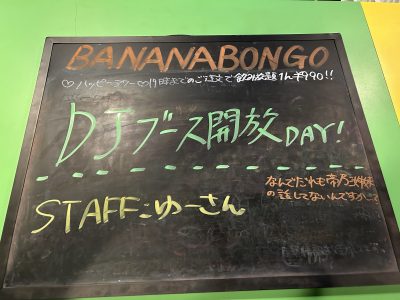 BANANABONGO
♡ハッピーアワー♡19時までのご注文で飲み放題1人¥990!!
DJブース開放DAY!
なんでだれも帯乃
の話してないんですか
STAFF:ゆーさん